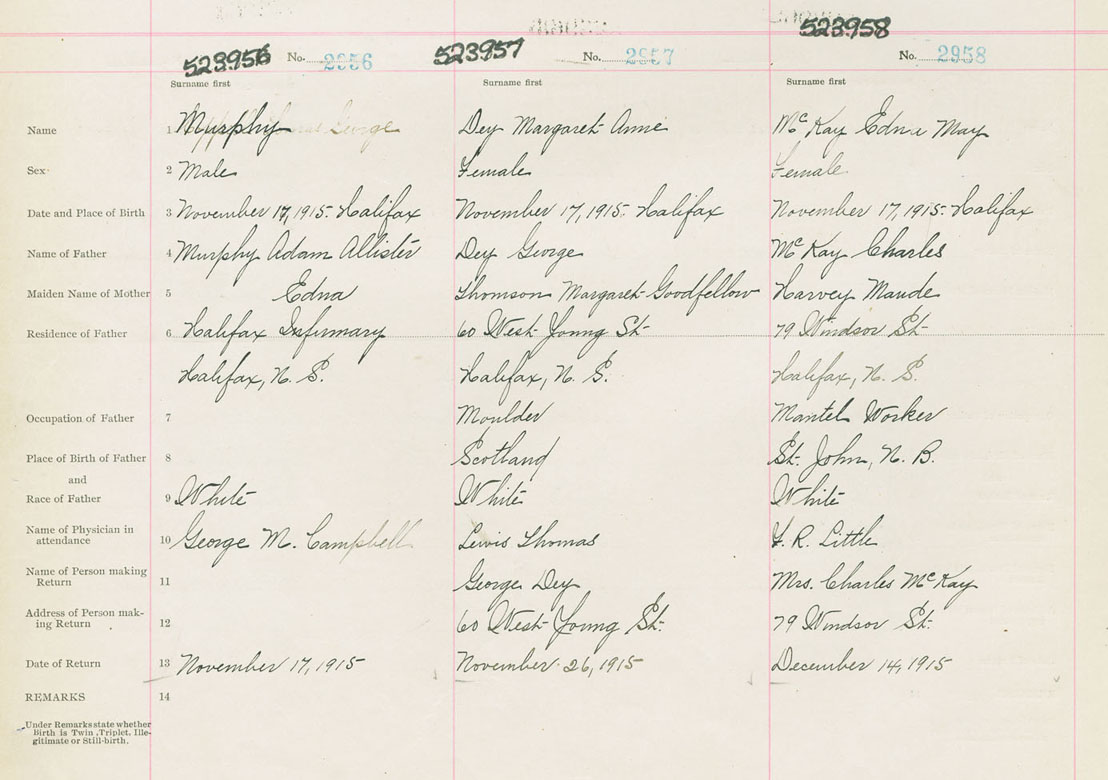 523956 No. 2956 523957 No. 2957 523958 No. 2958
Surname first Surname first Surname first
Name 1 Murphy George Dey Margaret Anne McKay Edna May
Sex 2 Male Female Female
Date and Place of Birth 3 November 17, 1915. Halifax November 17, 1915. Halifax November 17, 1915. Halifax
Name of Father 4 Murphy Adam Allister Dey George McKay Charles
Maiden Name of Mother 5 Edna Thomson Margaret Goodfellow Harvey Maude
Residence of Father 6 Halifax Infirmary 60 West Young St. 79 Windsor St.
Halifax, N. S. Halifax, N. S. Halifax, N. S.
Occupation of Father 7 Moulder Mantel Worker
Place of Birth of Father 8 Scotland St. John, N. B.
and
Race of Father 9 White White White
Name of Physician in
attendance 10 George M. Campbell Lewis Thomas R. Little
Name of Person making
Return 11 George Dey Mrs. Charles McKay
Address of Person mak-
ing Return 12 60 West Young St. 79 Windsor St.
Date of Return 13 November 17, 1915 November 26, 1915 December 14, 1915
REMARKS 14
Under Remarks state whether
Birth is Twin, Triplet, Ille-
gitimate or Still-birth.